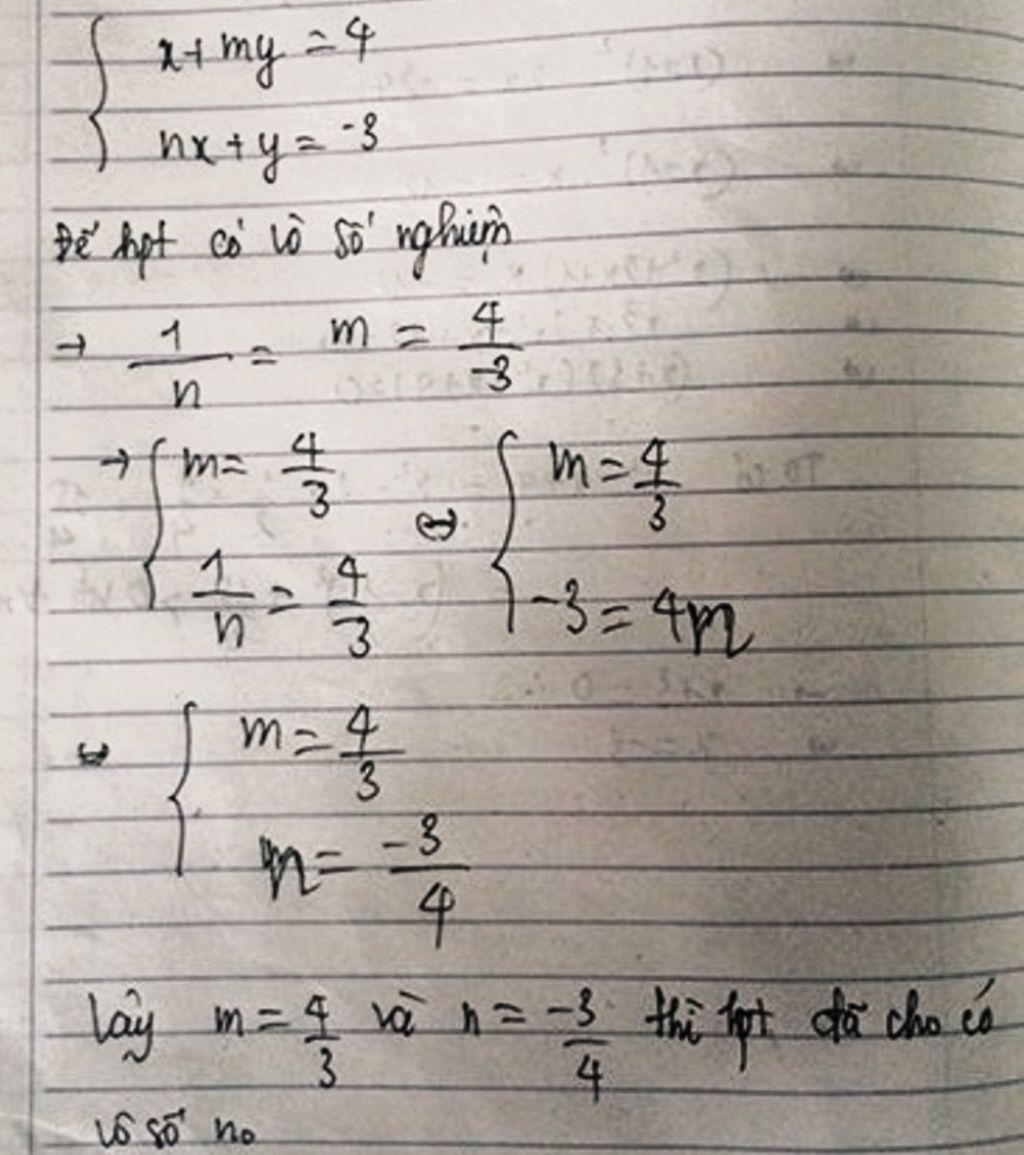 x + my = 4
nx + y = -3
Để hpt có vô số nghiệm
→ 1/n = m = 4/-3
→ { m = 4/3 ⇔ { m = 4/3
1/n = 4/3 -3 = 4n
⇔ { m = 4/3
n = -3/4
Vậy m = 4/3 và n = -3/4 thì hpt đã cho có
vô số no